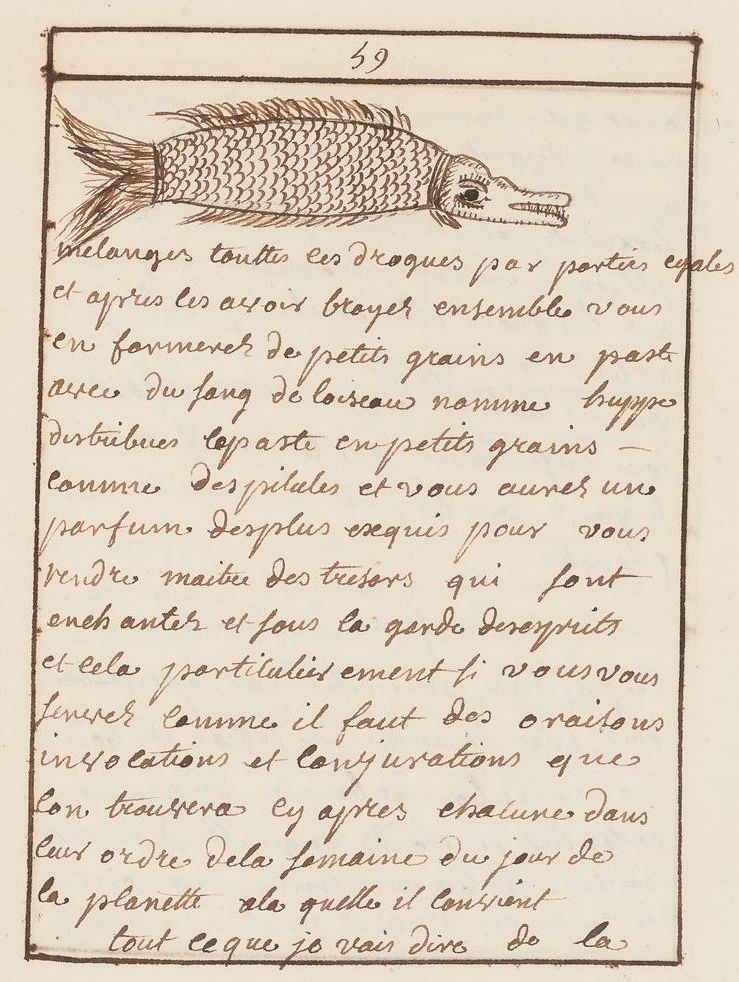 59
mélanges touttes les drogues par parties egales
et apres les avoir broyez ensemble vous
en formerez de petits grains en paste
avec du sang de loiseau nomme huppe
distribues lepaste en petits grains —
comme despilules et vous aurez un
parfum desplus exequis pour vous
rendre maitre des tresors qui sont
enchantez et sous la garde desesprits
et cela particulierement si vousvous
servez comme il faut des oraisons
invocations et conjurations que
lon trouvera cy apres chacune dans
leur ordre dela semaine du jour de
la planette ala quelle il convient
tout ceque je vais dire de la